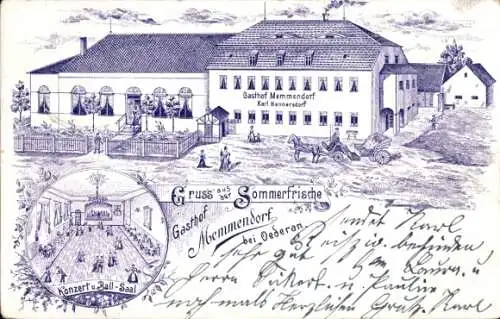 Gasthof Memmendorf
Karl Hennersdorf
Gruss aus der Sommerfrische
Gasthof
Memmendorf
bei Oederan
Konzert u. Ball-Saal
sendet Karl
befinden
sehr gut
Laura u
Herrn u. Paulin
nochmals Herzlichen Gruß Karl